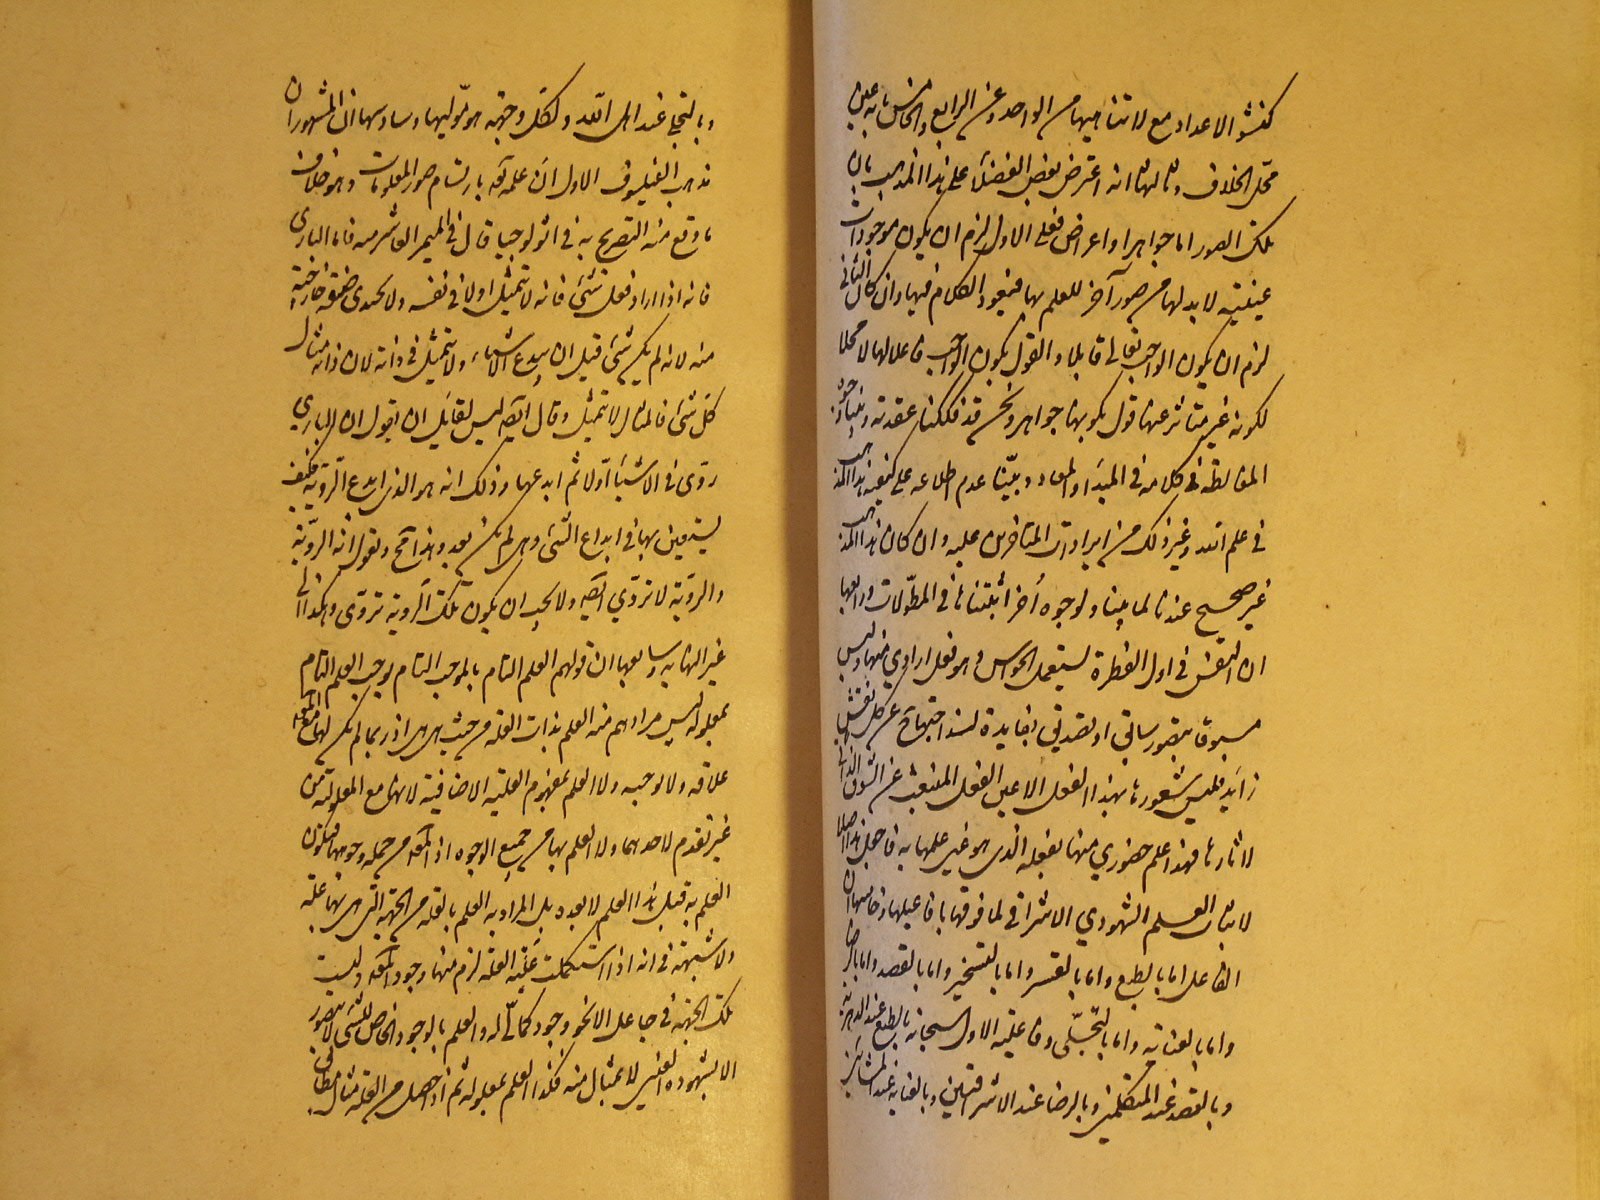 كنشو الاعداد مع لا تناهيها من الواحد وعن الرابع والخامس بانه عين
محل الخلاف وثالثها انه اعترض بعض الفضلاء على هذا المذهب بان
تلك الصور اما جواهر او اعراض فعلى الاول لزم ان يكون موجودات
عينية لا بد لها من صور آخر للعلم بها فيعود الكلام فيها وان كان الثاني
لزم ان يكون الواجب تعالى قابلا وفاعلا والقول بكون الواجب فاعلا لها لا محلا
لكونه غير متأثر عنها قول بكونها جواهر ونحن قد فككنا عقدته وبينا وجوه
المغالطة في كلامه في المبدأ والمعاد وبيّنا عدم اطلاعه على كيفية هذا المذهب
في علم الله وغير ذلك من ايرادات المتأخرين عليه وان كان هذا المذهب
غير صحيح عندنا لما بينا ولوجوه أخر اثبتناها في المطوّلات ورابعها
ان النفس في اول الفطرة يستعمل الحواس وهو فعل ارادي منها وليس
مسبوقا بتصور سابق او تصديق بفايدة لسذاجتها ح عن كل نقش
زائد فليس شعورها بهذا الفعل الا عين الفعل المنبعث عن الشوق الذاتي
لاثارها فهذا علم حضوري منها بفعله الذي هو غير علمها به فاجعل هذا اصلا
لاثبات العلم الشهودي الاشراقي لما فوقها بافاعيلها وخامسها ان
الفاعل اما بالطبع واما بالقسر واما بالتسخير واما بالقصد واما بالرضا
واما بالعناية واما بالتجلّى وفاعلية الاول سبحانه بالطبع عند الدهرية
وبالقصد عند المتكلمين وبالرضا عند الاشراقيين وبالعناية عند المشائين
وبالتجلي عند اهل الله ولكل وجهة هو مولّيها وسادسها ان المشهور ان
مذهب الفيلسوف الاول ان علمه تعه بارتسام صور المعلومات وهو خلاف
ما وقع منه التصريح به في اثولوجيا قال في الميمر العاشر منه فاما الباري
فانه اذا اراد فعل شئ فانه لا يتمثل اولا في نفسه ولا يحتذى صنعة خارجة
منه لانه لم يكن شئ قبل ان يبدع الاشياء ولا يتمثل في ذاته لان ذاته مثال
كل شئ فالمثال لا يتمثل وقال ايضا ليس لقائل ان يقول ان الباري
روّى في الاشياء اولا ثم ابدعها وذلك انه هو الذي ابدع الروّية فكيف
يستعين بها في ابداع الشئ وهي لم تكن بعد وهذا مح ونقول انه الرويّة
والرويّة لا تروّي ايضا ولا يجب ان يكون تلك الروية تروّى وهكذا الى
غير النهاية وسابعها ان قولهم العلم التام بالموجب التام يوجب العلم التام
بمعلوله ليس مرادهم منه العلم بذات العلة من حيث هي هي اذ ربما لم يكن لها مع المعلول
علاقة ولا توجبه ولا العلم بمفهوم العلية الاضافية لانها مع المعلولية من
غير تقدم لاحدهما ولا العلم بها من جميع الوجوه اذ المعلول من جملة وجوهها فيكون
العلم به قبل هذا العلم لا بعده بل المراد به العلم بالعلة من الجهة التي هي بها علة
ولا شبهة في انه اذا استكملت علّية العلة لزم منها وجود المعلول وليست
تلك الجهة في جاعل الا نحو وجود كماليّ له والعلم بالوجود الخاص للشئ لا يتصور
الا بشهوده العيني لا بمثال منه فكذا العلم بمعلوله ثم اذا حصل من العلة مثال مطابق